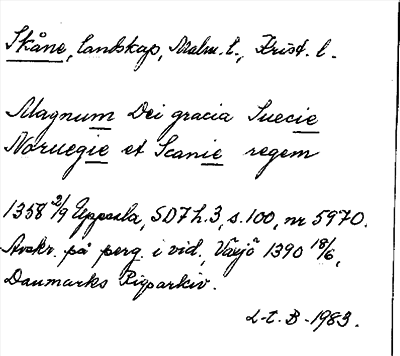 Skåne, landskap, Malm. l., Krist. l.
Magnum Dei gracia Suecie
Noruegie et Scanie regem
1358 2/9 Uppsala, SD 7 h. 3, s. 100, nr 5970.
Avskr. på perg. i vid., Växjö 1390 18/6,
Danmarks Rigsarkiv.
L-t. B-1983.